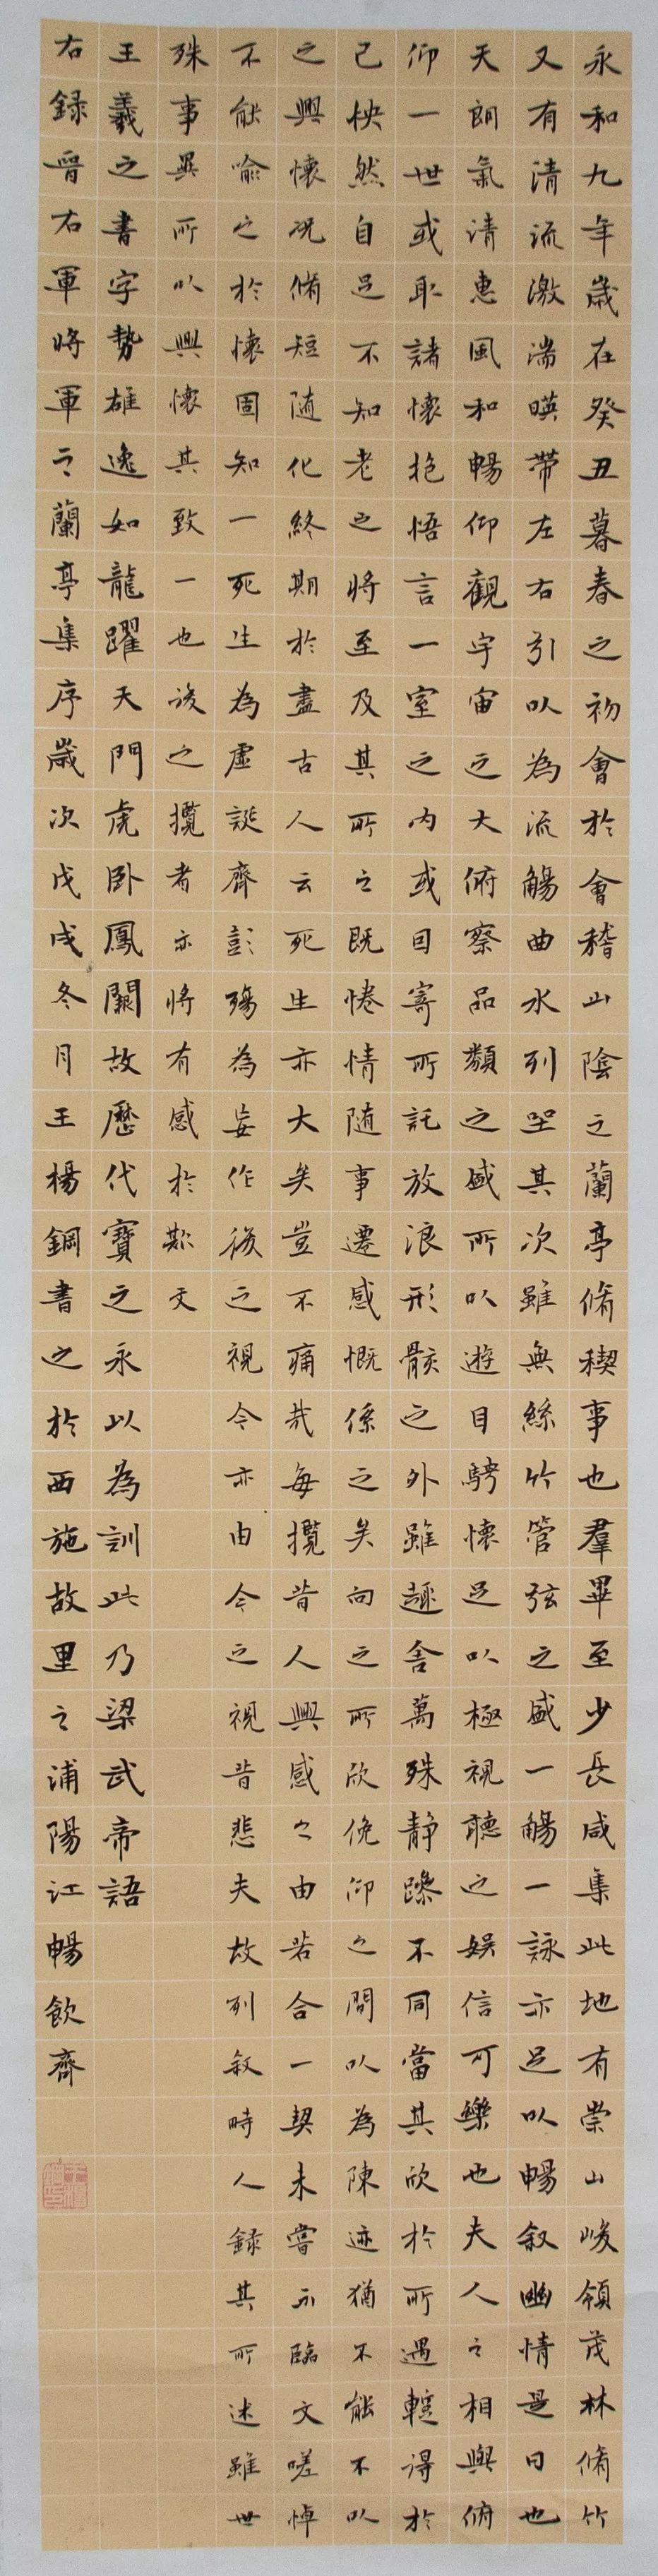 永和九年歲在癸丑暮春之初會於會稽山陰之蘭亭脩稧事也羣畢至少長咸集此地有崇山峻領茂林脩竹
又有清流激湍暎帶左右引以為流觴曲水列坐其次雖無絲竹管弦之盛一觴一詠亦足以暢叙幽情是日也
天朗氣清惠風和暢仰觀宇宙之大俯察品類之盛所以遊目騁懷足以極視聽之娛信可樂也夫人之相與俯
仰一世或取諸懷抱悟言一室之內或因寄所託放浪形骸之外雖趣舍萬殊静躁不同當其欣於所遇蹔得於
己怏然自足不知老之將至及其所之既惓情隨事遷感慨係之矣向之所欣俛仰之間以為陳迹猶不能不以
之興懷况脩短隨化終期於盡古人云死生亦大矣豈不痛哉每攬昔人興感之由若合一契未嘗不臨文嗟悼
不能喻之於懷固知一死生為虛誕齊彭殤為妄作後之視今亦由今之視昔悲夫故列叙時人錄其所述雖世
殊事異所以興懷其致一也後之攬者亦將有感於斯文
王羲之書字勢雄逸如龍躍天門虎卧鳳闕故歷代寶之永以為訓此乃梁武帝語
右録晉右軍將軍之蘭亭集序歲次戊戌冬月王楊鋼書之於西施故里之浦陽江暢飲齋